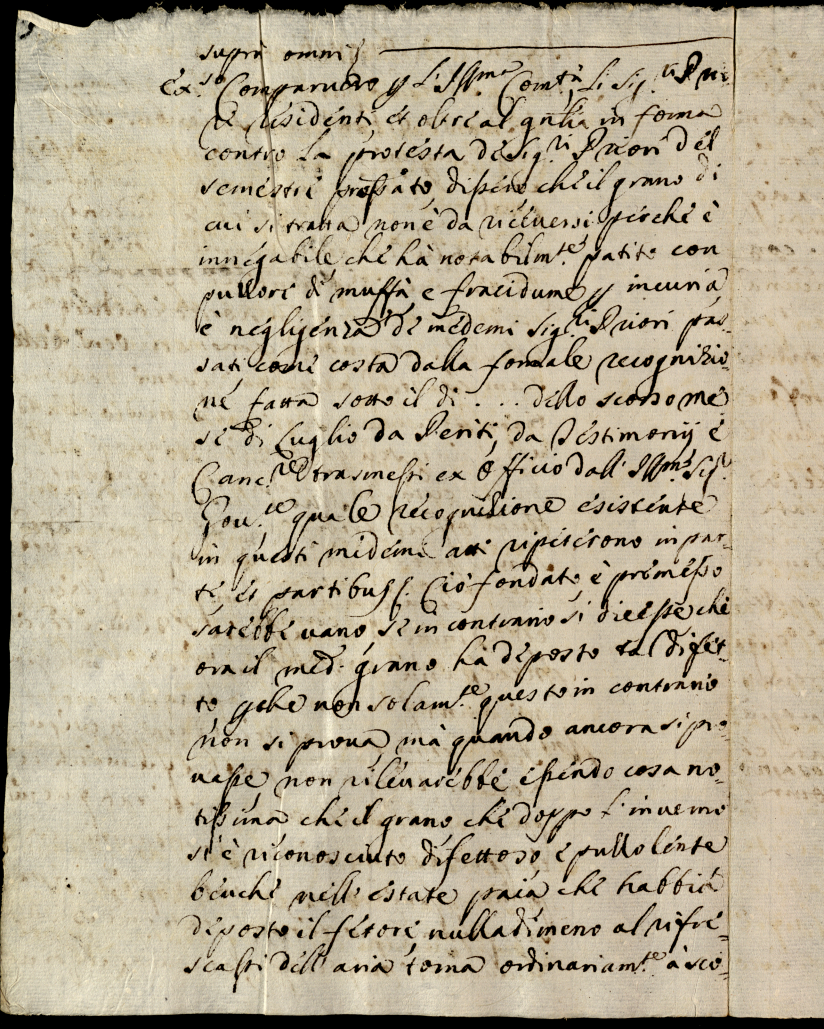 supra omni
Ex.so Comparuero p l'Ill.ma Com.tà, li Sig.ri Prio-
ri residenti et oltre al gnlia in forma
contro la protesta de Sig.ri Priori del
semestre passato dissero che il grano di
cui si tratta non è da riceversi perche è
innegabile che hà notabilm.te patito con
pullore di muffa e fracidume p incuria
è negligenza de medemi Sig.ri Priori pas-
sati come costa dalla formale recognizio-
ne fatta sotto il di . . . dello scorso me
se di Luglio da Periti, da Testimonij è
Canc.re trasmessi ex Officio dall' Ill.mo Sig.r
Gov.re quale recognizione esistente
in questi medemi atti ripeterono in par-
te et partibus. Ciò fondato è premesso
sarebbe vano se in contrario si dicesse che
ora il med. grano hà deposto tal difet-
to pche non solam.te questo in contrario
non si prova mà quando ancora si pro-
vasse non rilevarebbe essendo cosa no-
tissima che il grano che doppo l'inverno
si è riconosciuto difettoso e pullolente
benche nell' estate paia che habbia
deposto il fetore nulladimeno al rifre-
scarsi dell' aria torna ordinariam.te à sco-